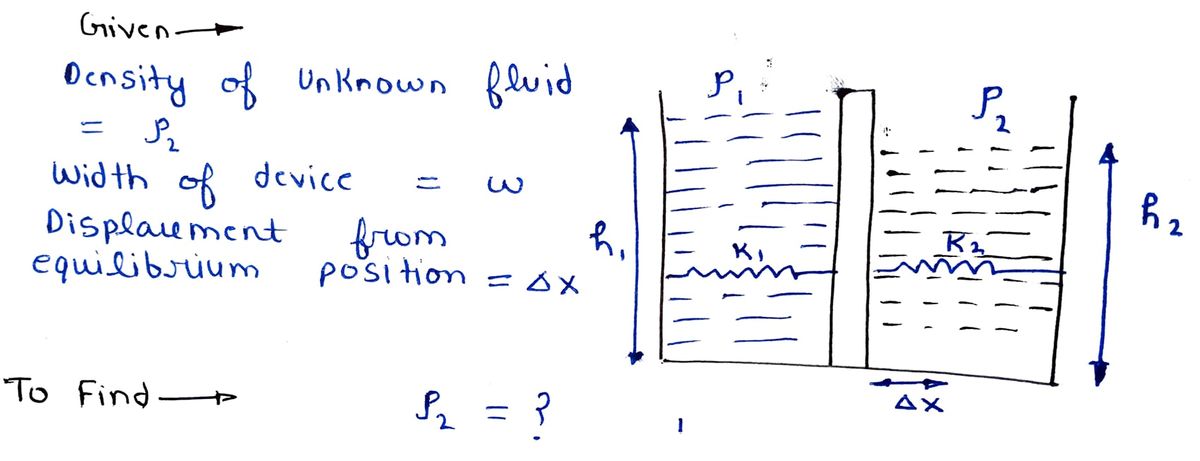 Given →
Density of Unknown fluid
= ρ₂
Width of device = ω
Displacement from
equilibrium position = Δx
To Find →
ρ₂ = ?
ρ₁
ρ₂
h₁
K₁
K₂
h₂
Δx